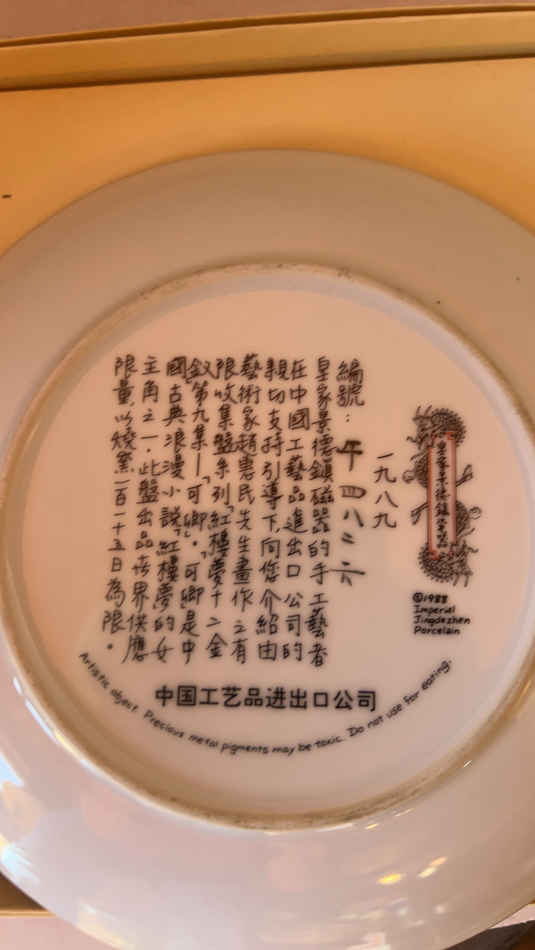 一九八九
編號：午四八二六
皇家景德鎮磁器的手工藝者
在中國工藝品進出口公司的
親切支持引導下，向您介紹由
藝術家趙惠民先生畫作之有
限收集盤系列「紅樓夢十二金
釵」第九集—「可卿」。「可卿」是中
國古典浪漫小說「紅樓夢」的女
主角之一，此盤出品在世界供應
限量以燒窯一百一十五日為限。
©1988
Imperial
Jingdezhen
Porcelain
中国工艺品进出口公司
Artistic object. Precious metal pigments may be toxic. Do not use for eating.